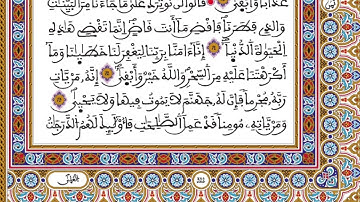 عَذَابًا وَأَبْقَىٰ قَالُوا لَن نُّوثِرَكَ عَلَىٰ مَا جَاءَنَا مِنَ الْبَيِّنَٰتِ
وَالذِى فَطَرَنَا فَاقْضِ مَا أَنتَ قَاضٍ إِنَّمَا تَقْضِى هَٰذِهِ
الْحَيَوٰةَ الدُّنْيَا إِنَّا ءَامَنَّا بِرَبِّنَا لِيَغْفِرَ لَنَا خَطَٰيَٰنَا وَمَا
أَكْرَهْتَنَا عَلَيْهِ مِنَ السِّحْرِ وَاللَّهُ خَيْرٌ وَأَبْقَىٰ إِنَّهُ مَنْ يَّاتِ
رَبَّهُ مُجْرِمًا فَإِنَّ لَهُ جَهَنَّمَ لَا يَمُوتُ فِيهَا وَلَا يَحْيَىٰ
وَمَنْ يَّاتِهِ مُومِنًا قَدْ عَمِلَ الصَّٰلِحَٰتِ فَأُوْلَٰئِكَ لَهُمُ الدَّرَجَٰتُ